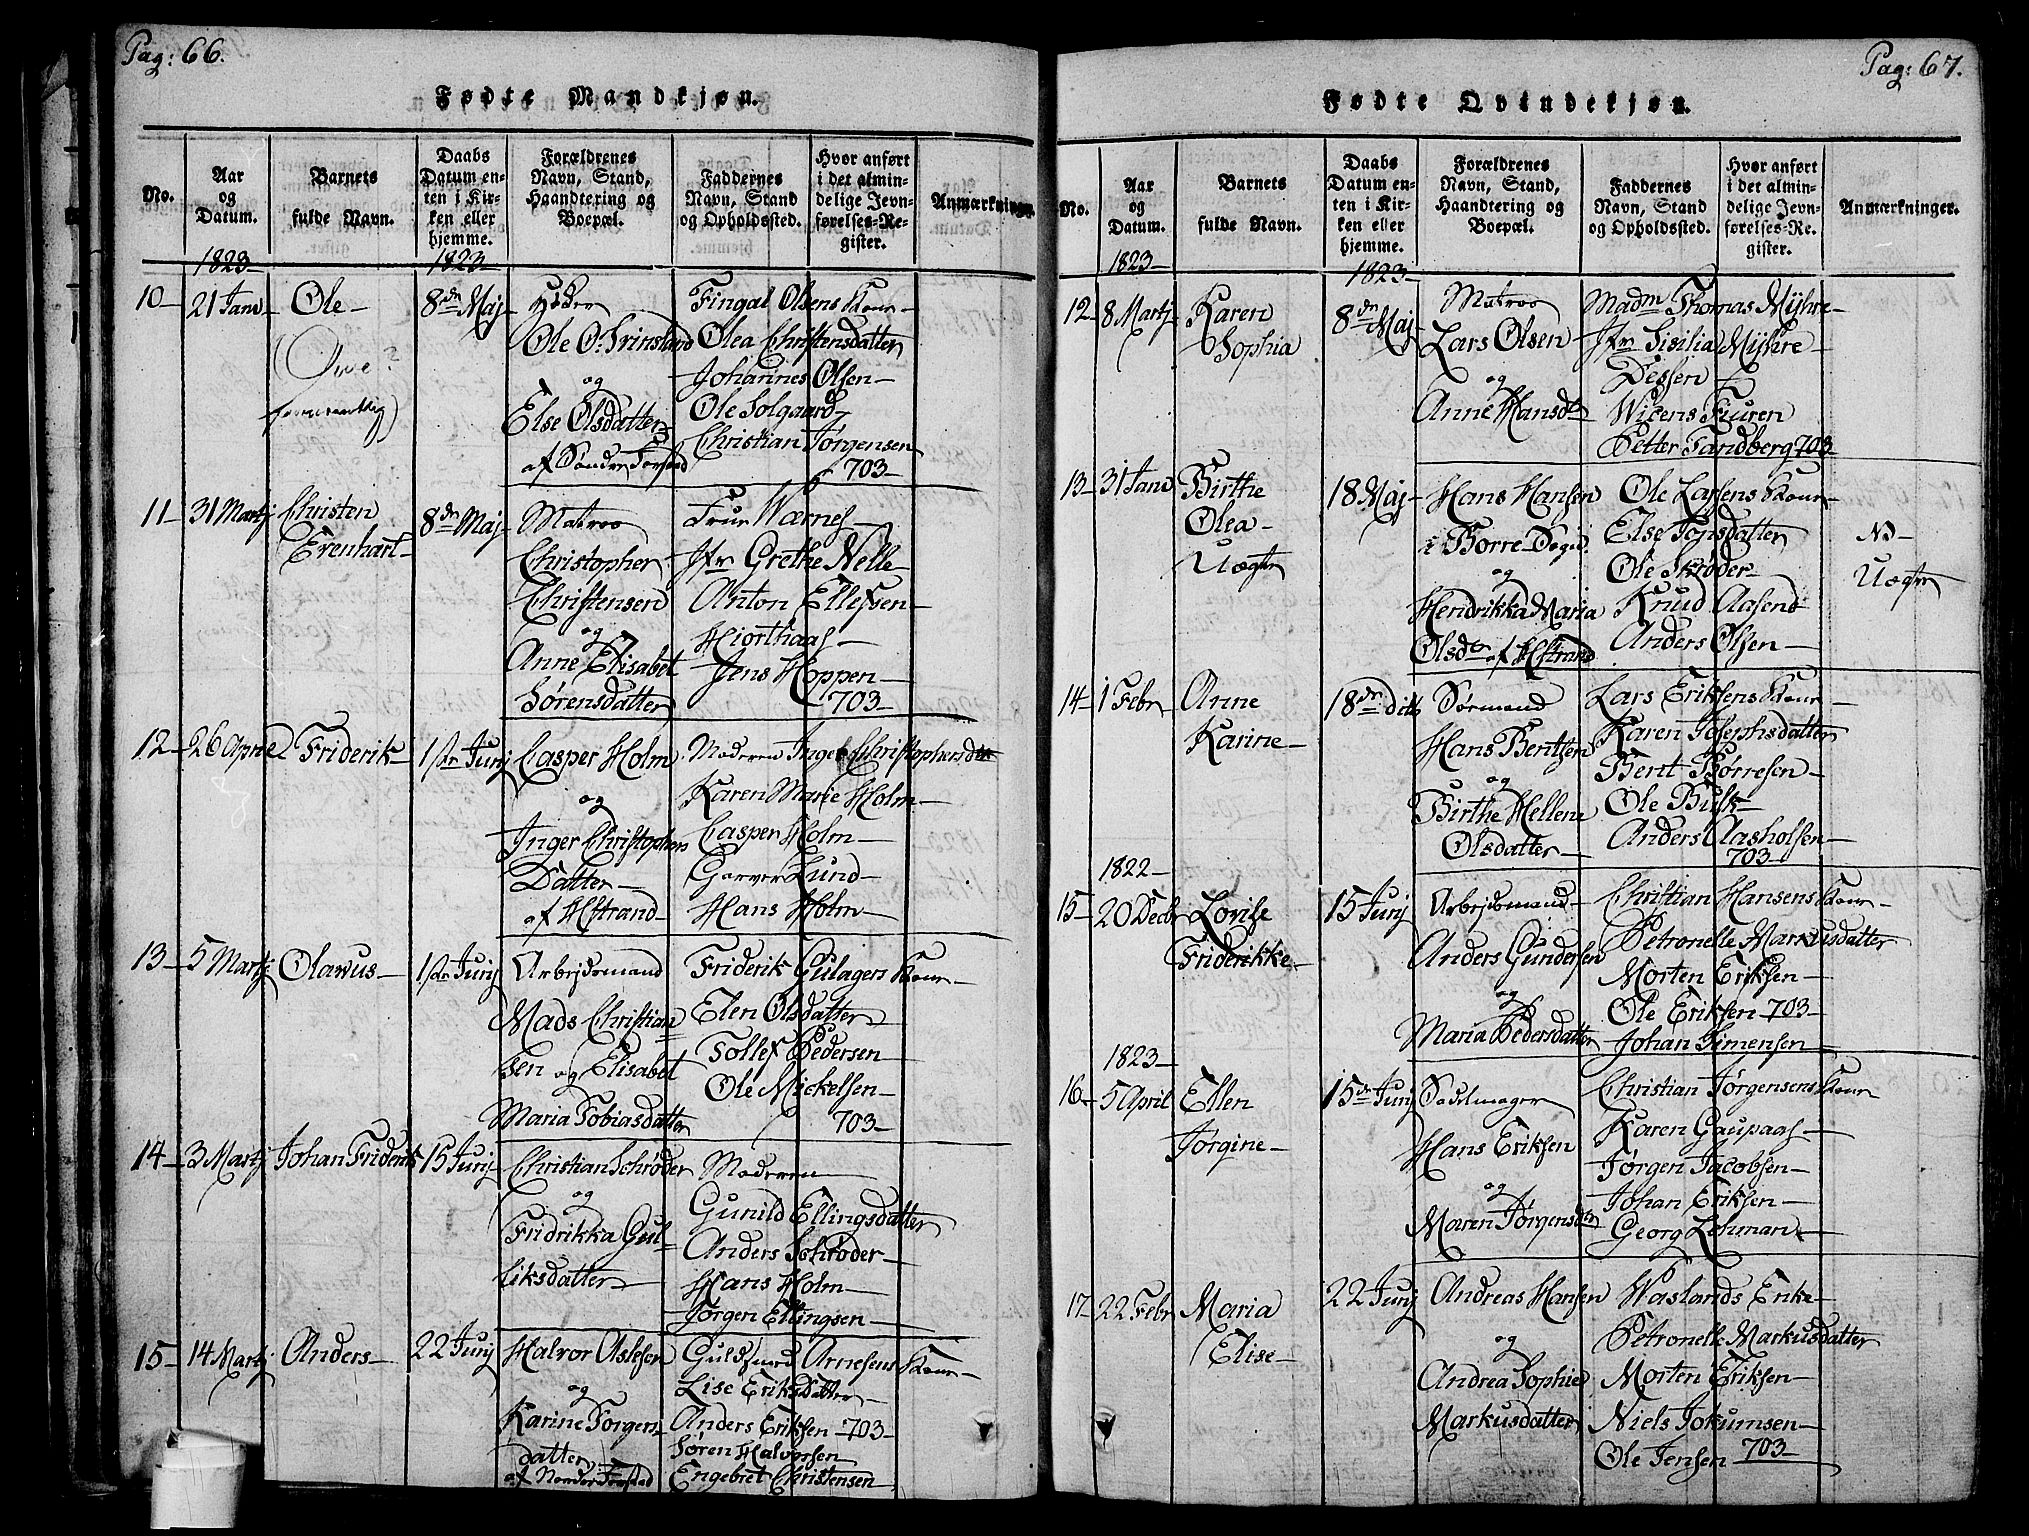 Pag: 66.
Fødte Mandkjøn.
No.
Aar og Datum.
Barnets fulde Navn.
Daabs Datum enten i Kirken eller hjemme.
Forældrenes Navn, Stand, Haandtering og Boepæl.
Faddernes Navn, Stand og Opholdssted.
Hvor anført i det almindelige Jevnførelses-Register.
Anmærkninger
1823-
1823-
10- 21 Janv
Ole-
(Ove?
8de Maj-
Ole O:
og
Else Olsdatter
af Sønder
Fingal Olsens Kone-
Olea Christensdatter
Johannes Olsen-
Ole Solgaard
Christian Jørgensen
703-
11- 31 Martj
Christen
Erenhart-
8de Maj-
Matros
Christopher
Christensen
og
Anne Elisabet
Sørensdatter
Frue Wærnes-
Jfr Grethe Nelle-
Anton Ellefsen-
Hjorthaas-
Jens Hoppen-
703-
12- 26 April
Friderik-
1ste Junj
Casper Holm
og
Inger Christophers
Datter-
af Hstrand-
Moderen Inger Christophersdtr
Karen Marie Holm-
Casper Holm-
Garver Lund-
Hans Holm-
13- 5 Martj
Olavus-
1ste Junj
Arbejdsmand
Mads Christian
sen og Elisabet
Maria Tobiasdatter
Friderik Gulagers Kone-
Elen Olsdatter
Tollef Pedersen
Ole Mickelsen-
703-
14- 3 Martj
Johan Friderik
15 Junj
Christian Schrøder
og
Fridrikka Gul-
liksdatter-
Moderen
Gunild Ellingsdatter
Anders Schrøder-
Hans Holm-
Jørgen Ellingsen-
15- 14 Martj
Anders-
22 Junj
Halvor Aslesen
og
Karine Jørgens
datter
af Nordre
Arnesens Kone-
Lise Eriksdatter
Anders Eriksen-703-
Søren Halvorsen
Engebret Christensen
Pag: 67.
Fødte Qvindekjøn.
No.
Aar og Datum.
Barnets fulde Navn.
Daabs Datum enten i Kirken eller hjemme.
Forældrenes Navn, Stand, Haandtering og Boepæl.
Faddernes Navn, Stand og Opholdssted.
Hvor anført i det almindelige Jevnførelses-Register.
Anmærkninger.
1823-
1823-
12- 8 Martj-
Karen
Sophia
8de Maj
Matros
Lars Olsen
og
Anne Hansdtr
Madm Thomas Myhre-
Jfr Sisilia Myhre-
Dessen-
Petter Tandberg 703-
13- 31 Janv
Birthe
Olea-
Uægte
18 Maj-
Hans Hansen
i Borre
og
Hendrikka Maria
Olsdtr af Hstrand
Ole Larsens Kone-
Else Torsdatter
Ole Skrøder-
Knud Aasend
Anders Olsen-
NB-
Uægte
14- 1 Febr
Anne
Karine-
18de dito
Sørmand
Hans Bentsen
og
Birthe Hellene
Olsdatter-
Lars Eriksens Kone-
Karen Josephsdatter
Bent Børresen-
Ole Busk-
Anders Aasholsen-
703-
1822-
15- 20 Decbr
Lovise
Friderikke-
15 Junj
Arbejdsmand-
Anders Gundersen
og
Maria Pedersdatter
Christian Hansens Kone-
Petronelle Markusdatter
Morten Eriksen-
Ole Eriksen-703-
Johan Simensen-
1823-
16- 5 April
Ellen
Jørgine-
15de Junj
Sadelmager
Hans Eriksen
og
Maren Jørgensdtr
Christian Jørgensens Kone-
Karen Gaupaas-
Jørgen Jacobsen-
Johan Eriksen-
Georg Lohman-
17- 22 Febr
Maria
Elise-
22 Junj
Andreas Hansen
og
Andrea Sophie
Markusdatter
Waslands Enke-
Petronelle Markusdatter
Morten Eriksen-
Niels Jokumsen-
Ole Jensen 703-